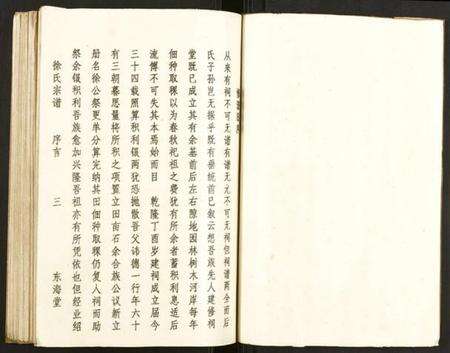 从来有祠不可无谱有谱尤不可无祠但祠谱两全而后
氏子孙岂无振乎既有垂统前已叙云想吾族先人建修祠
堂既已成立其有余基前后左右隙地因林树木河岸每年
佃种取稞以为春秋祀祖之费犹有所余者蓄积利息近后
流传不可失其本焉始而目 乾隆丁酉岁建祠成立届今
三十四载照算积利银两犹恐抛散吾父讳德一行年六十
有三朝暮思量将所积之项置立田亩石余合族公议新立
册名徐公祭更单分算完纳其田佃种取稞仍复入祠而助
祭余银积利吾族愈加兴隆吾祖亦有所凭依也但经业绍
徐氏宗谱 序言 三 东海堂